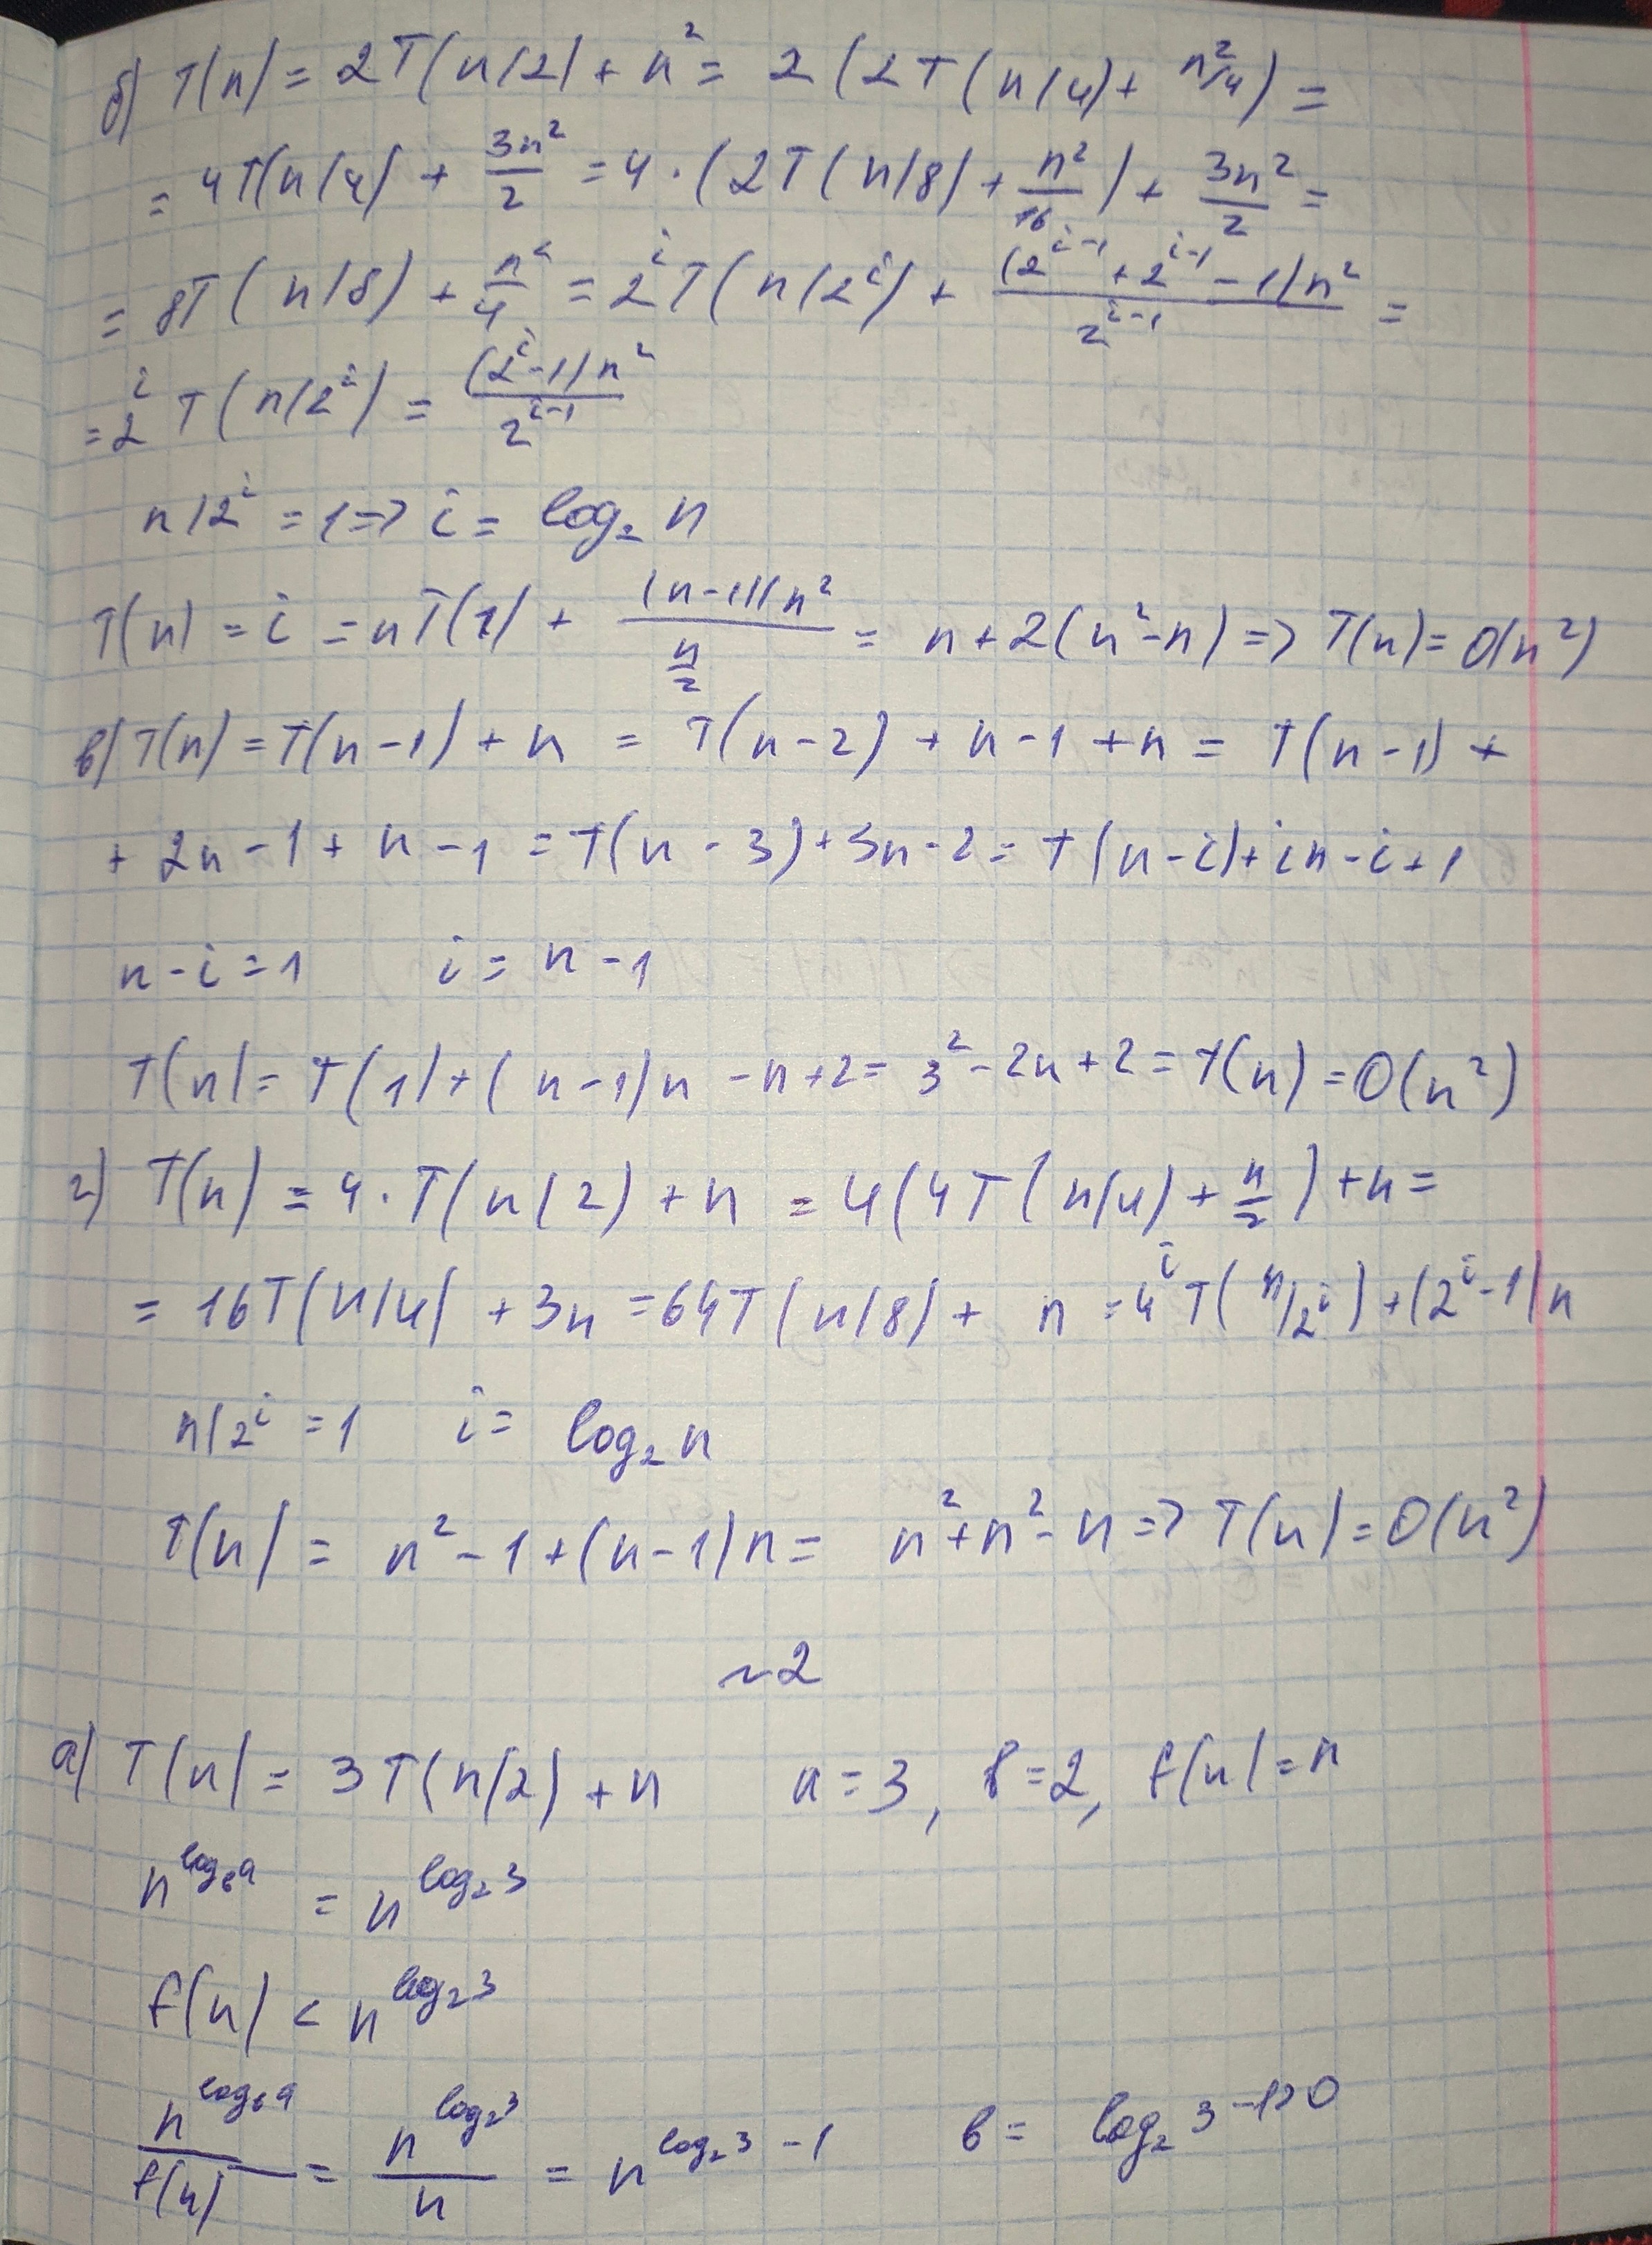 б) T(n) = 2T(n/2) + n² = 2(2T(n/4) + n²/4) =
= 4T(n/4) + 3n²/2 = 4·(2T(n/8) + n²/16) + 3n²/2 =
= 8T(n/8) + n²/4 = 2^i T(n/2^i) + (2^(i-1) + 2^(i-1) - 1)n² / 2^(i-1) =
= 2^i T(n/2^i) = (2^i - 1)n² / 2^(i-1)
n/2^i = 1 => i = log₂ n
T(n) = i = nT(1) + (n-1)(n² / n/2 = n + 2(n² - n) => T(n) = O(n²)
в) T(n) = T(n-1) + n = T(n-2) + n - 1 + n = T(n-1) +
+ 2n - 1 + n - 1 = T(n-3) + 3n - 2 = T(n-i) + in - i + 1
n - i = 1 i = n - 1
T(n) = T(1) + (n-1)n - n + 2 = 3² - 2n + 2 = T(n) = O(n²)
г) T(n) = 4·T(n/2) + n = 4(4T(n/4) + n/2) + n =
= 16T(n/4) + 3n = 64T(n/8) + n = 4^i T(n/2^i) + (2^i - 1)n
n/2^i = 1 i = log₂ n
T(n) = n² - 1 + (n-1)n = n² + n² - n => T(n) = O(n²)
~2
а) T(n) = 3T(n/2) + n a = 3, b = 2, f(n) = n
n^(log_b a) = n^(log₂ 3)
f(n) < n^(log₂ 3)
n^(log_b a) / f(n) = n^(log₂ 3) / n = n^(log₂ 3 - 1) в = log₂ 3 - 1 > 0